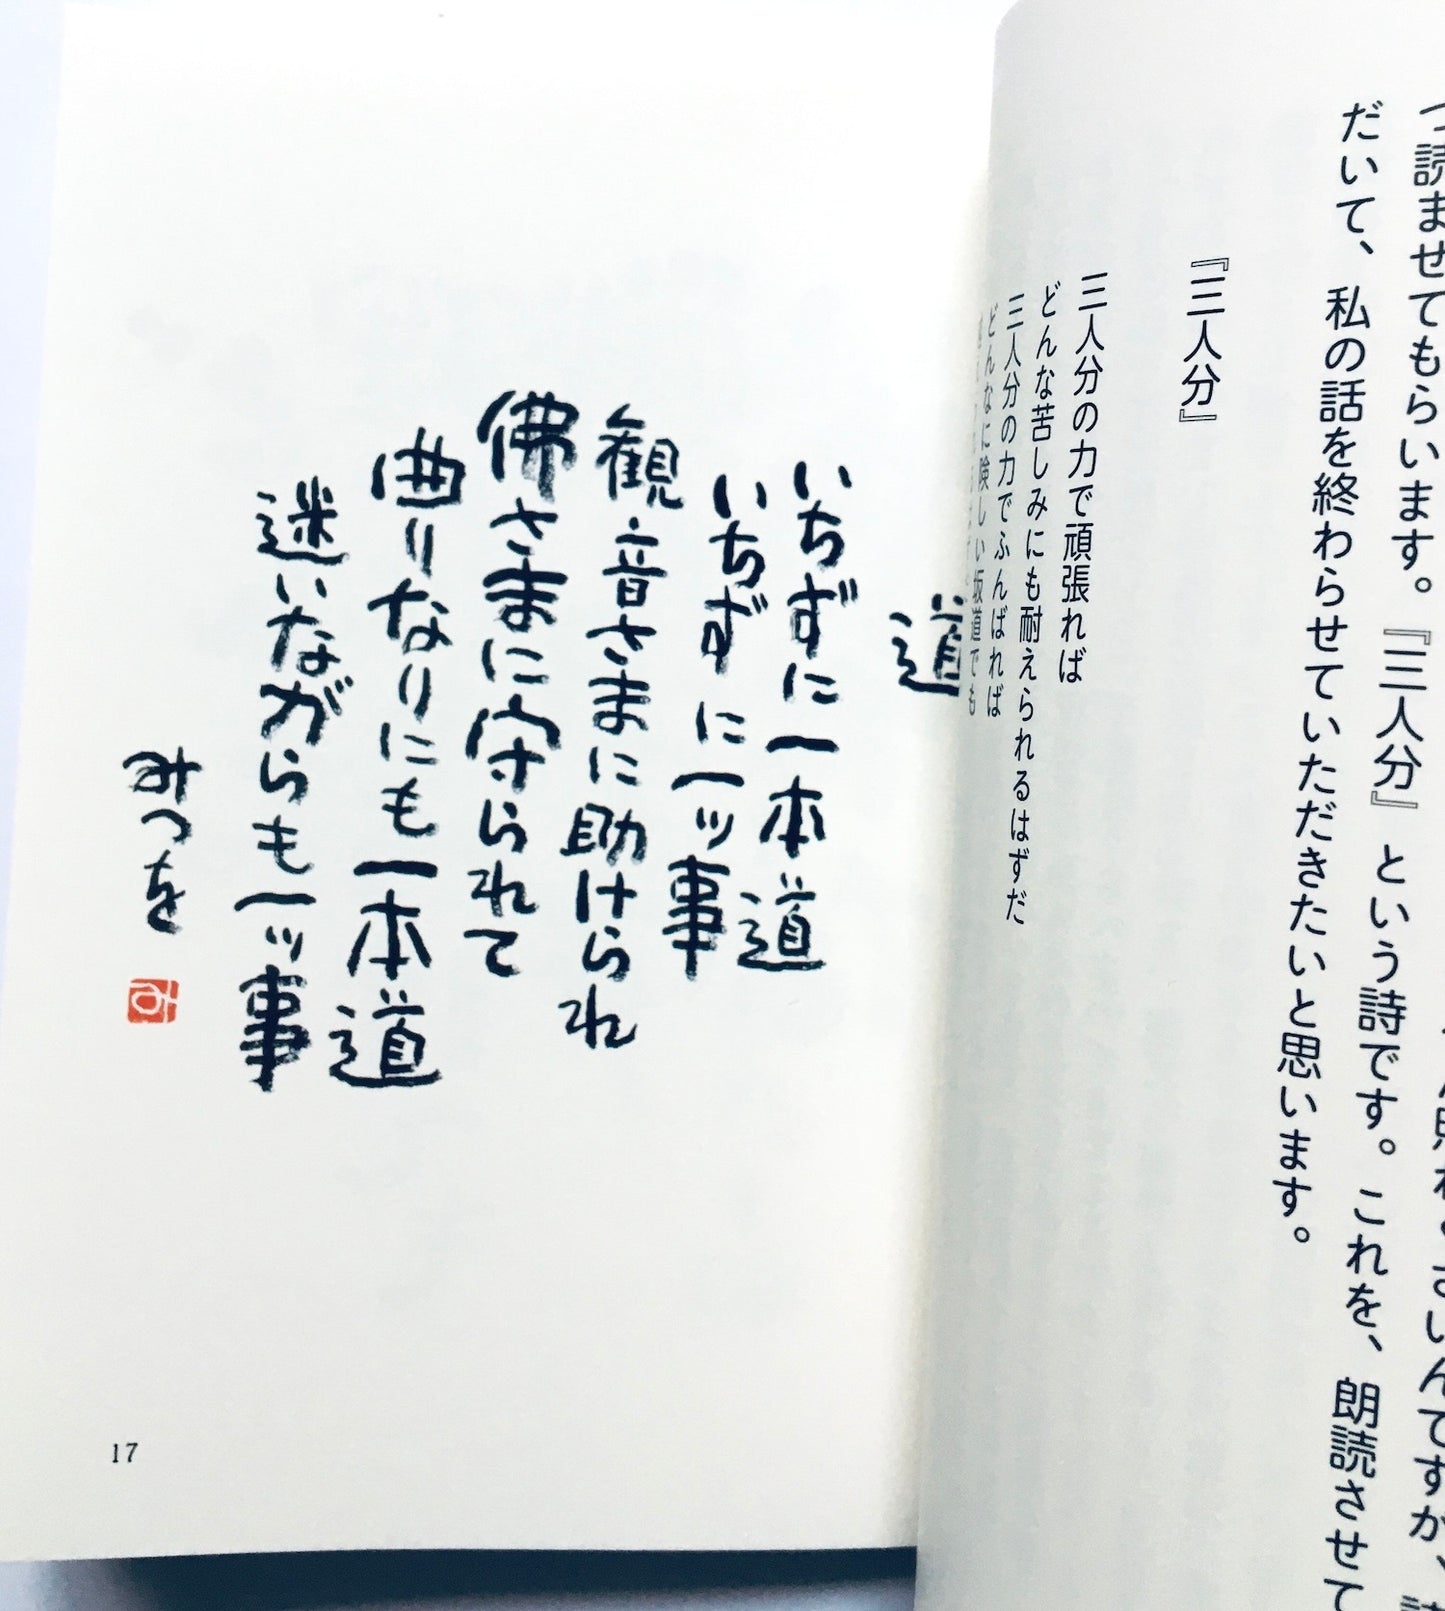 照れくさいんですが、
つ読ませてもらいます。『三人分』という詩です。これを、朗読させて
だいて、私の話を終わらせていただきたいと思います。
『三人分』
三人分の力で頑張れば
どんな苦しみにも耐えられるはずだ
三人分の力でふんばれば
どんなに険しい坂道でも
道
いちずに一本道
いちずに一ッ事
観音さまに助けられ
佛さまに守られて
曲りなりにも一本道
迷いながらも一ッ事
みつを
17